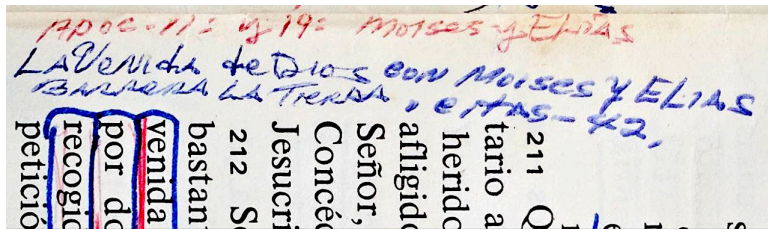 Apoc-11: y 19= Moises y Elias
La Venida de Dios con Moises y ELIAS
BARRERA LA TIERRA. citas-42,
211 Q
tario a
herido
afligido
Señor,
Concéd
Jesucri
212 Se
bastant
venida
por do
recogid
petició